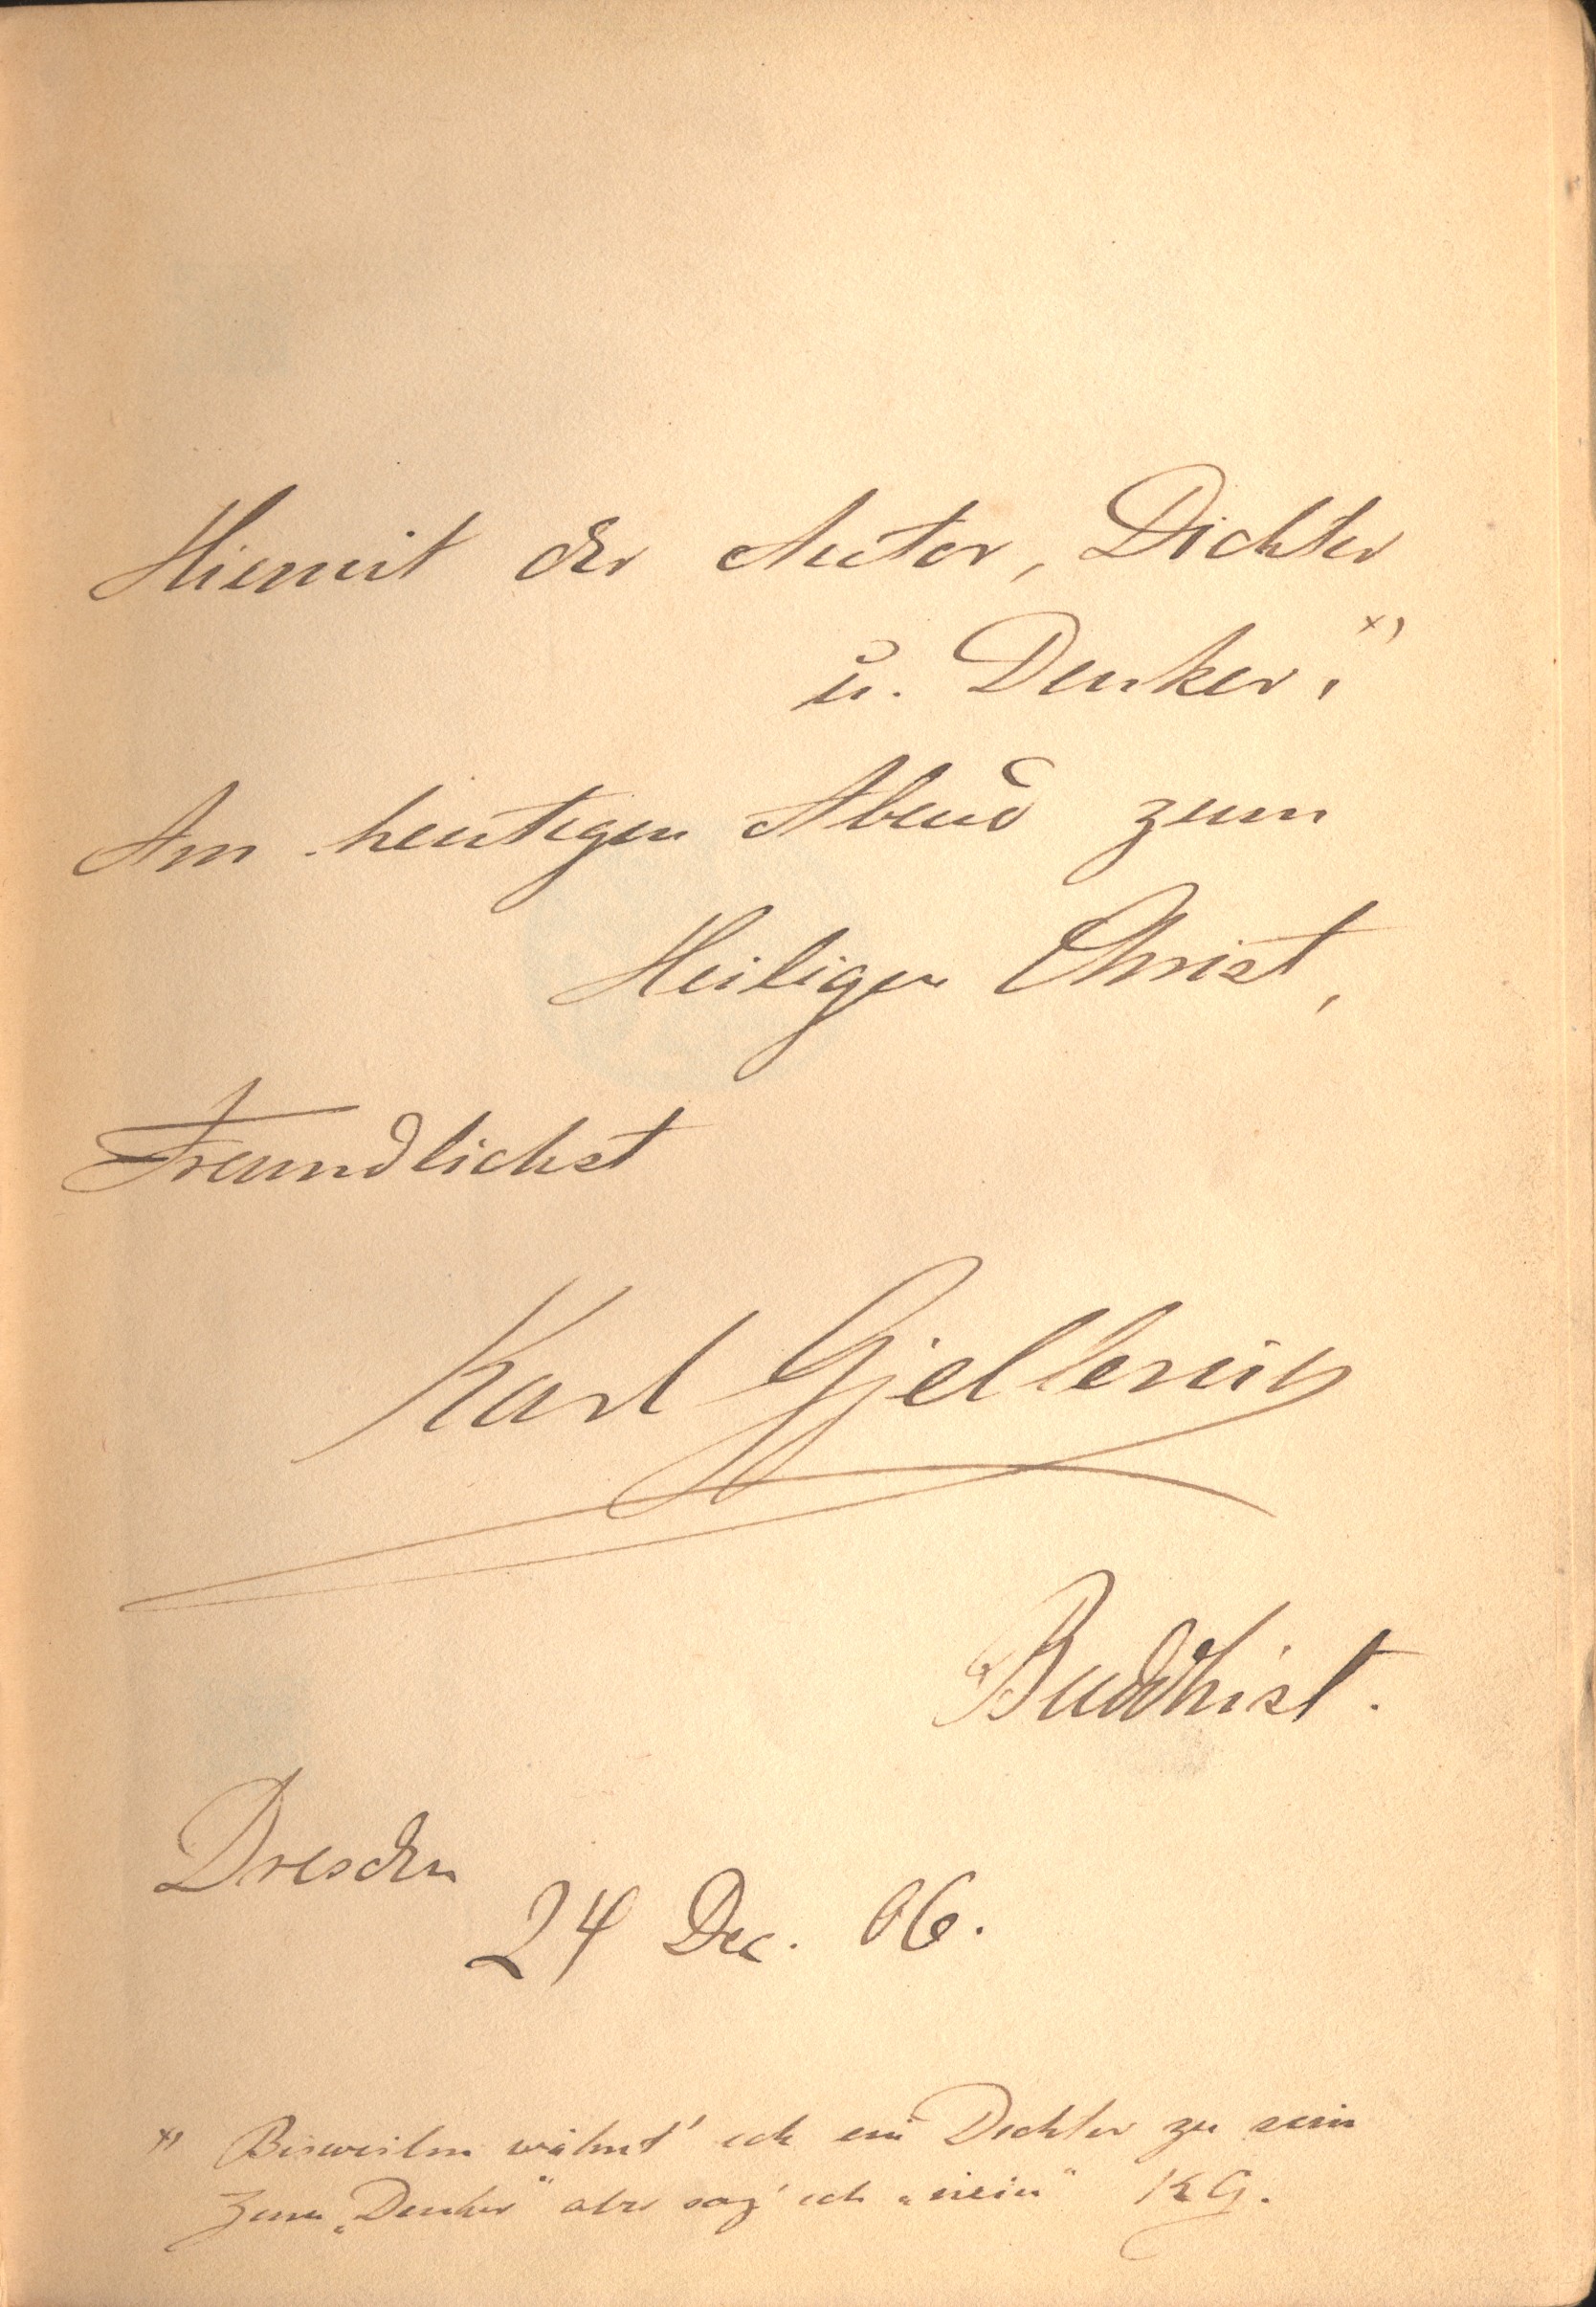 Hiemit der Autor, Dichter
u. Denker. x)
Am heutigen Abend zum
Heiligen Christ,
Freundlichst
Karl Gjellerup
Buddhist.
Dresden
24 Dec. 06.
x) Bisweilen wähnt' ich ein Dichter zu sein
Zum „Denker“ aber sag' ich „nein“ KG.